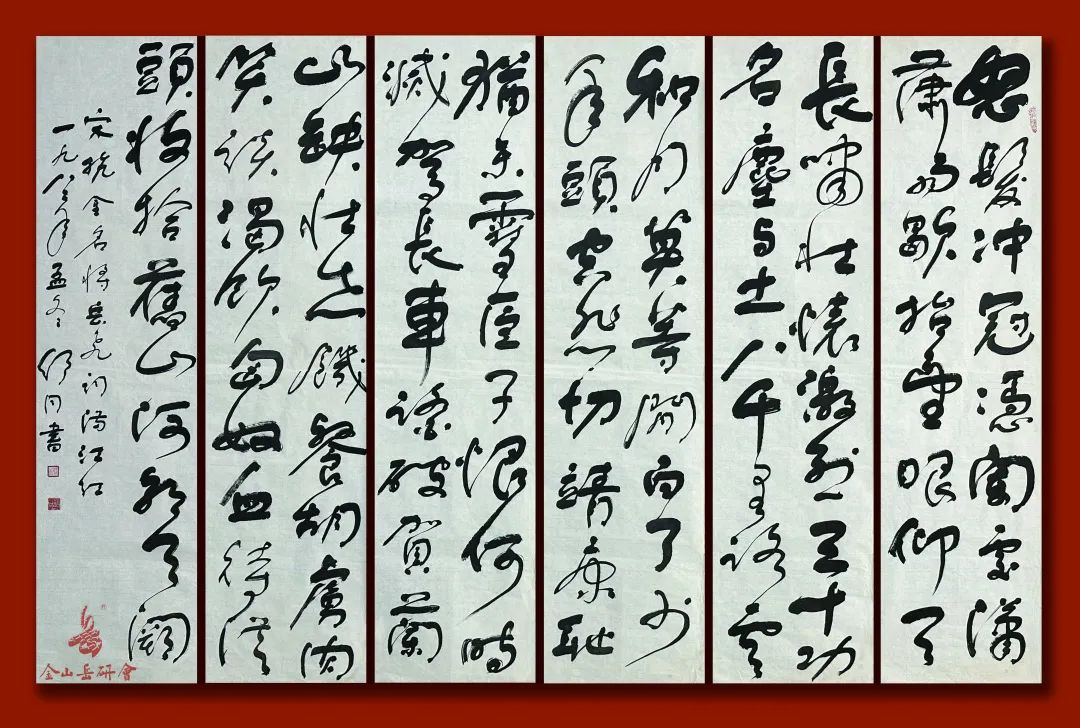 怒髮冲冠憑闌處瀟
蕭雨歇抬望眼仰天
長嘯壯懷激烈三十功
名塵与土八千里路雲
和月莫等閒白了少
年頭空悲切靖康耻
猶未雪臣子恨何時
滅駕長車踏破賀蘭
山缺壯志饑餐胡虜肉
笑談渴飲匈奴血待從
頭收拾舊山河朝天闕
宋抗金名將岳飛詞滿江紅
一九八年孟冬舒同書
金山岳研會